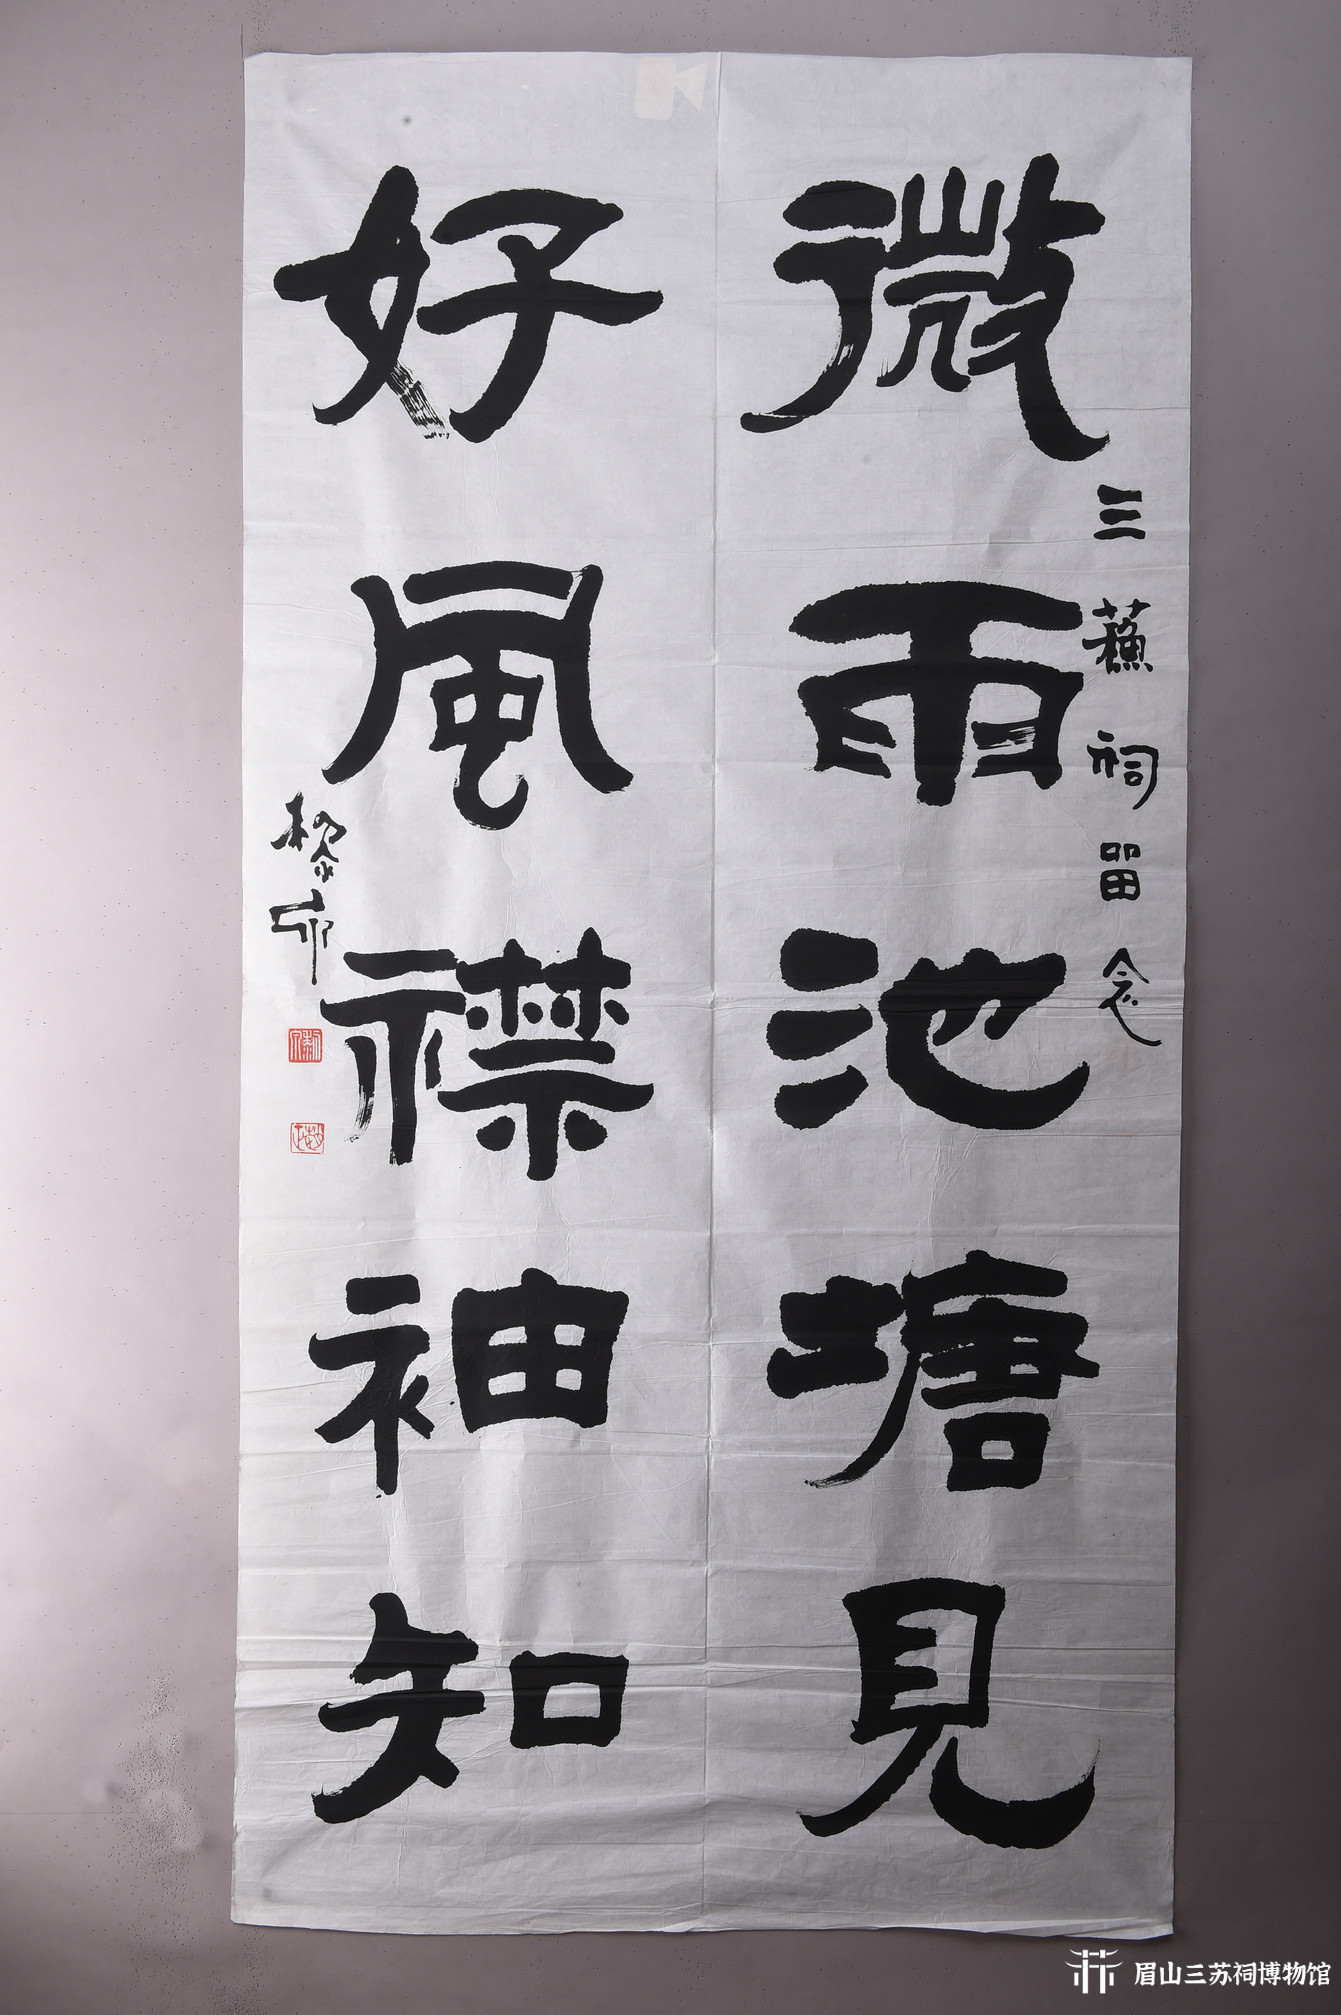 微雨池塘見
三蘇祠留念
好風襟袖知
黎
眉山三苏祠博物馆